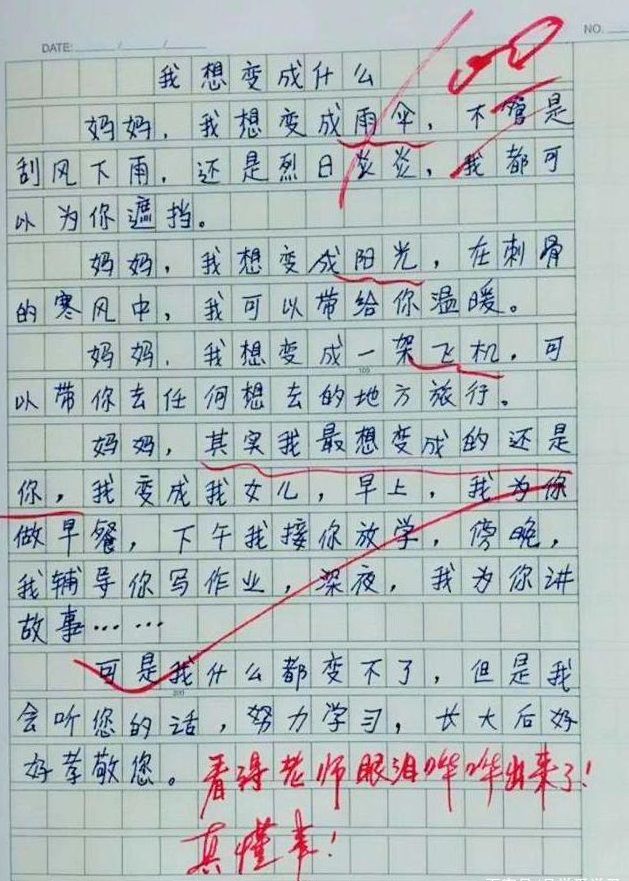 DATE: / /
NO.
100
我想变成什么
妈妈，我想变成雨伞，不管是
刮风下雨，还是烈日炎炎，我都可
以为你遮挡。
妈妈，我想变成阳光，在刺骨
的寒风中，我可以带给你温暖。
妈妈，我想变成一架飞机，可
100
以带你去任何想去的地方旅行。
妈妈，其实我最想变成的还是
你，我变成我女儿，早上，我为你
做早餐，下午我接你放学，傍晚，
我辅导你写作业，深夜，我为你讲
故事……
可是我什么都变不了，但是我
200
会听您的话，努力学习，长大后好
好孝敬您。看得老师眼泪哗哗出来了！
真懂事！